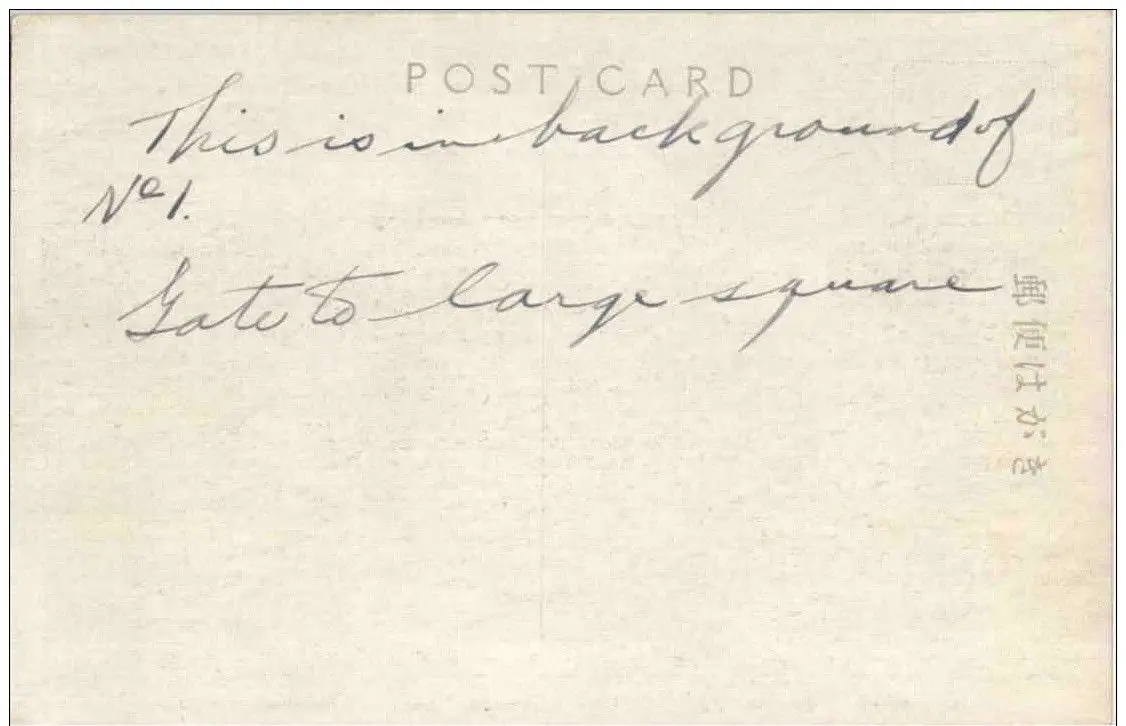 POST CARD
This is in background of
No 1.
Gate to large square
郵便はがき